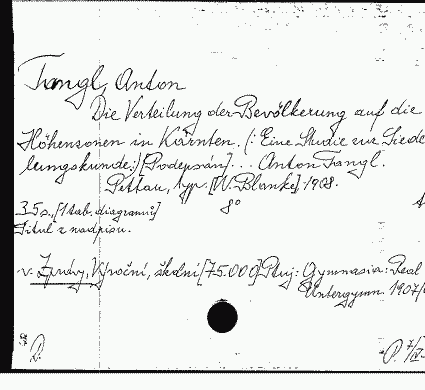 Tangl, Anton
Die Verteilung der Bevölkerung auf die
Höhenzonen in Kärnten. (: Eine Studie zur Siede
lungskunde:) [Podepsán] ... Anton Tangl.
Pettau, typ. [W. Blanke], 1908.
35 s. [1 tab. diagramů] 8°
Titul z nadpisu.
v. Zprávy, Výroční, školní [75.000] Ptuj: Gymnasia: Real
Untergymn. 1907/
D.